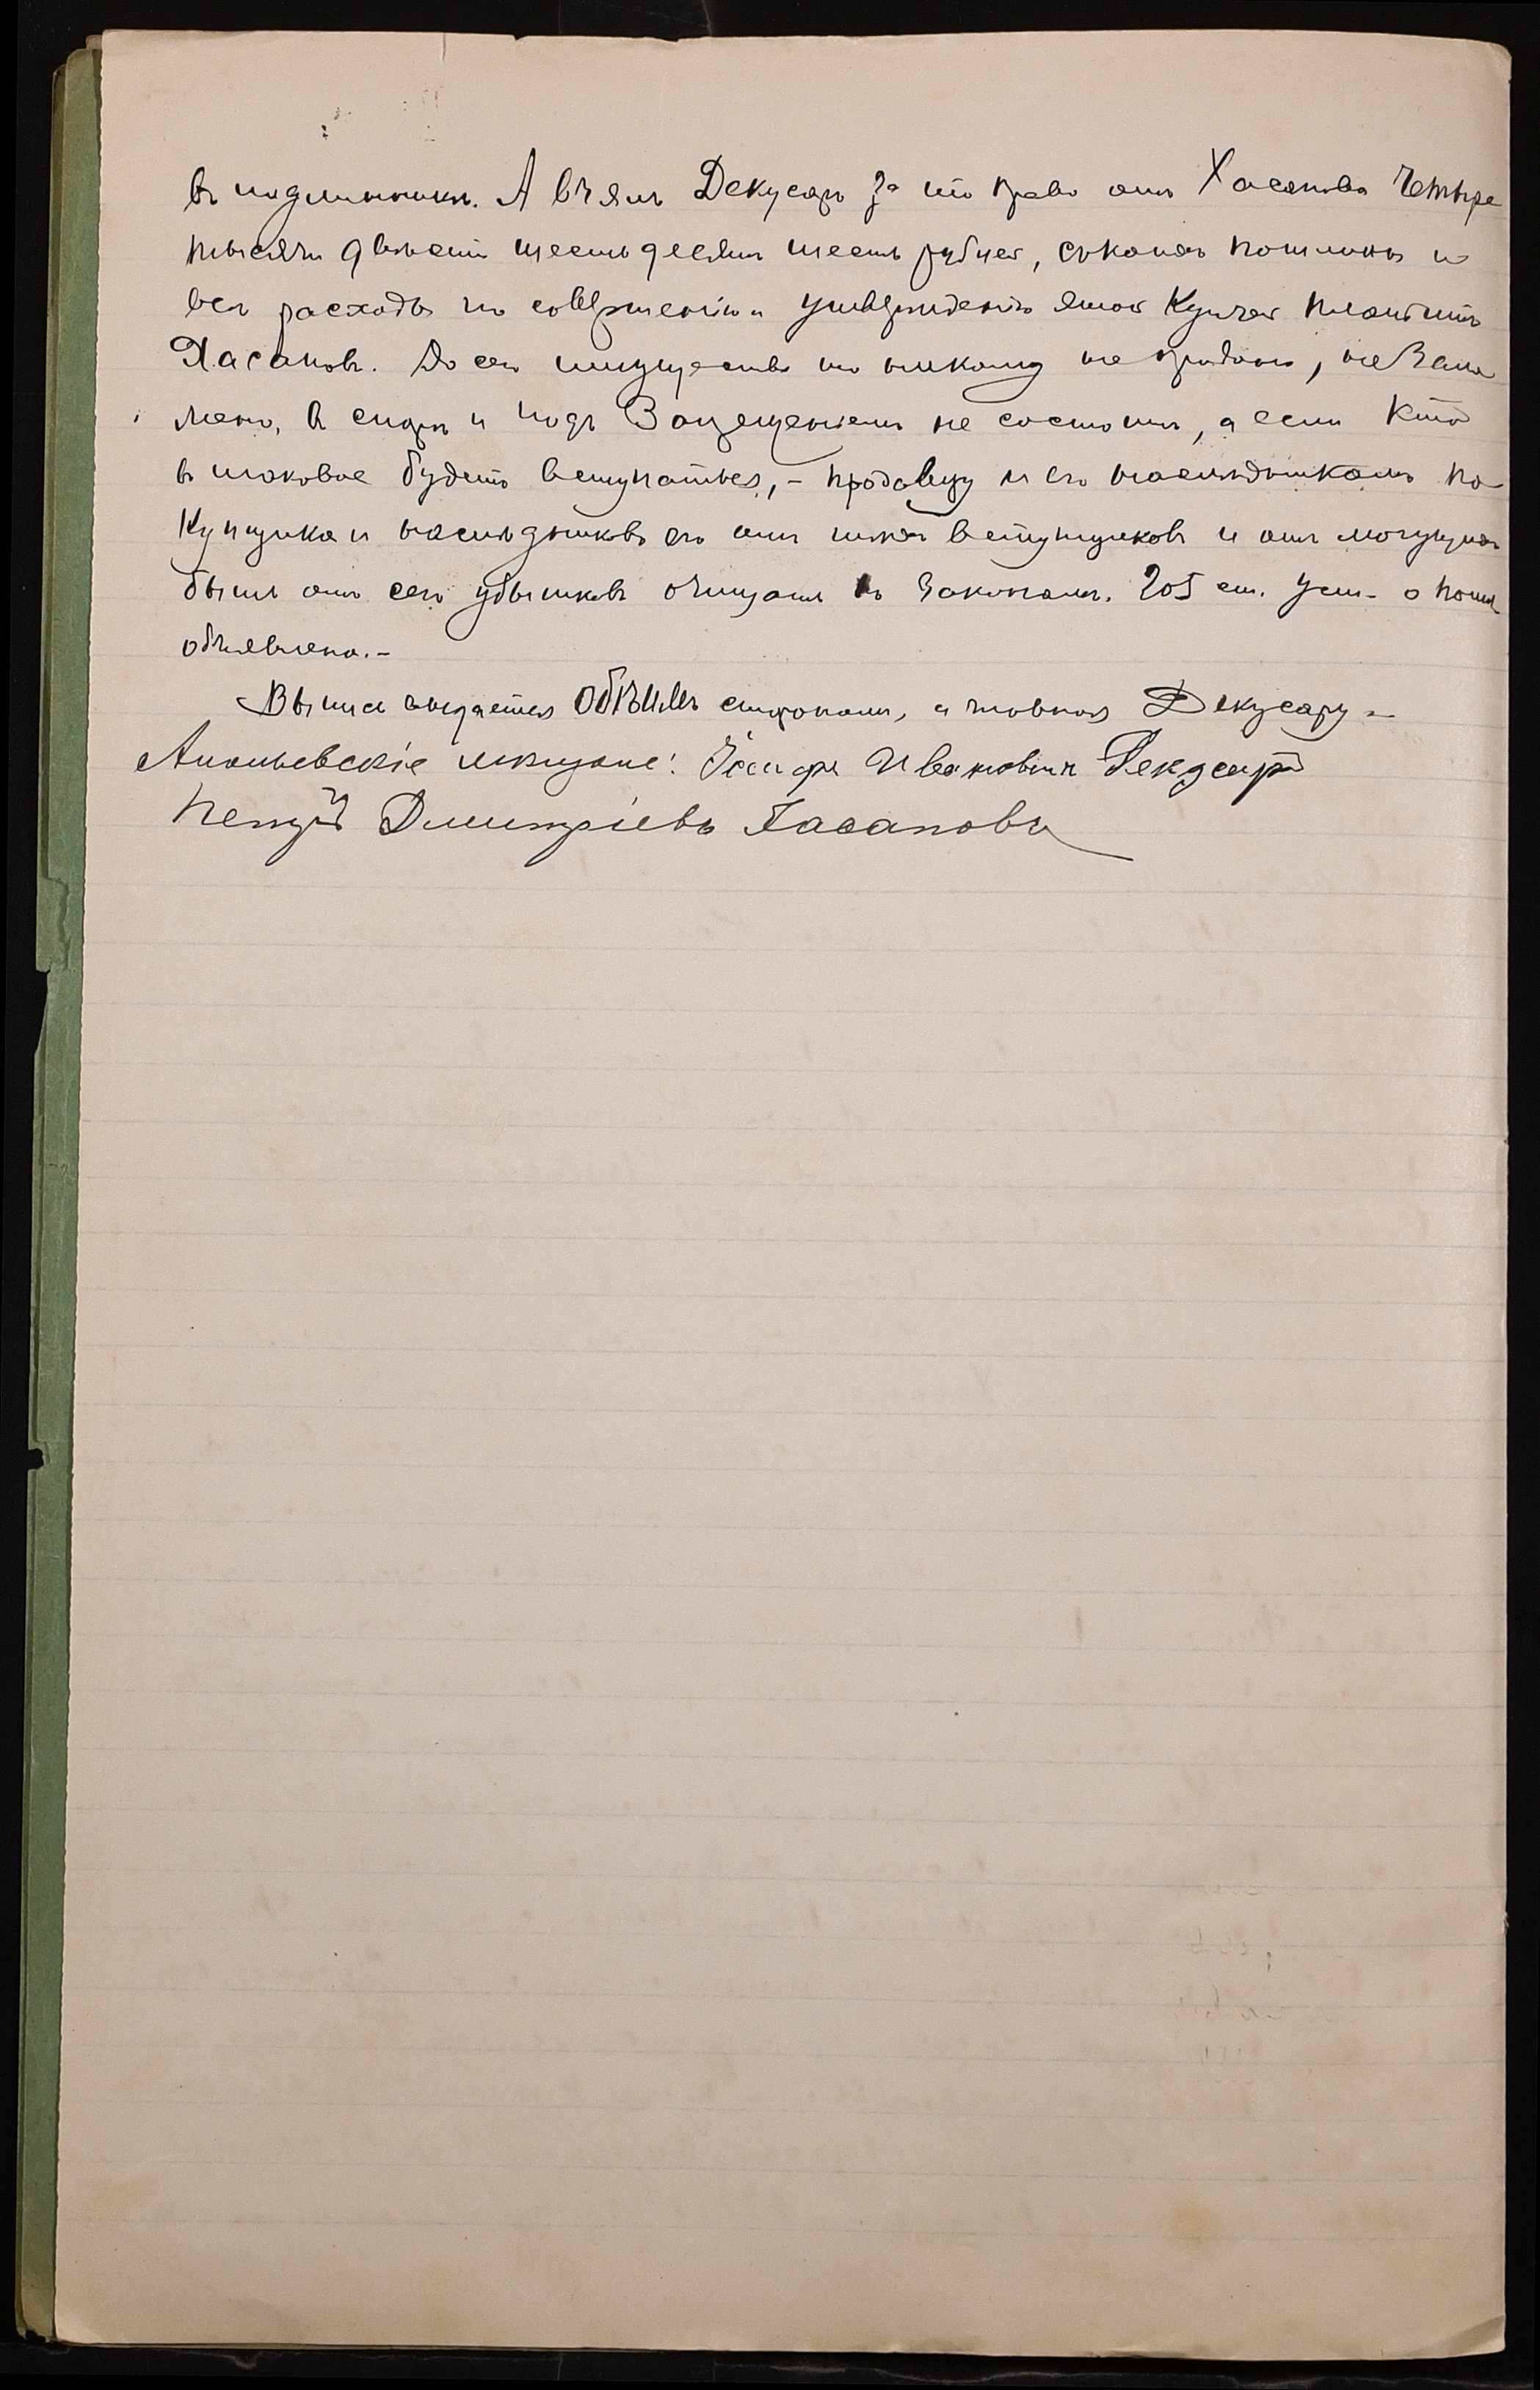 въ подлинникѣ. А взялъ Декусаръ за то право отъ Хасанова Четыре
тысячи двѣсти шестьдесятъ шесть рублей, съ коихъ пошлины и
всѣ расходы по совершенію и утвержденію этой Купчей платитъ
Хасановъ. До сего имущество то никому не продано, не Зало
жено, въ спорѣ и подъ Запрещеніемъ не состоитъ, а если Кто
въ таковое будетъ вступаться, - продавцу и его наслѣдникамъ по
купщика и наслѣдниковъ его отъ тѣхъ вступщиковъ и отъ могущихъ
быть отъ сего убытковъ очищать по Законамъ. 205 ст. Уст. о пошл.
объявлена. -
Выпись выдается Обѣимъ сторонамъ, а главная Декусару. -
Ананьевскіе мѣщане: Ивановичъ Декусаръ
Петръ Дмитріевъ Хасановъ